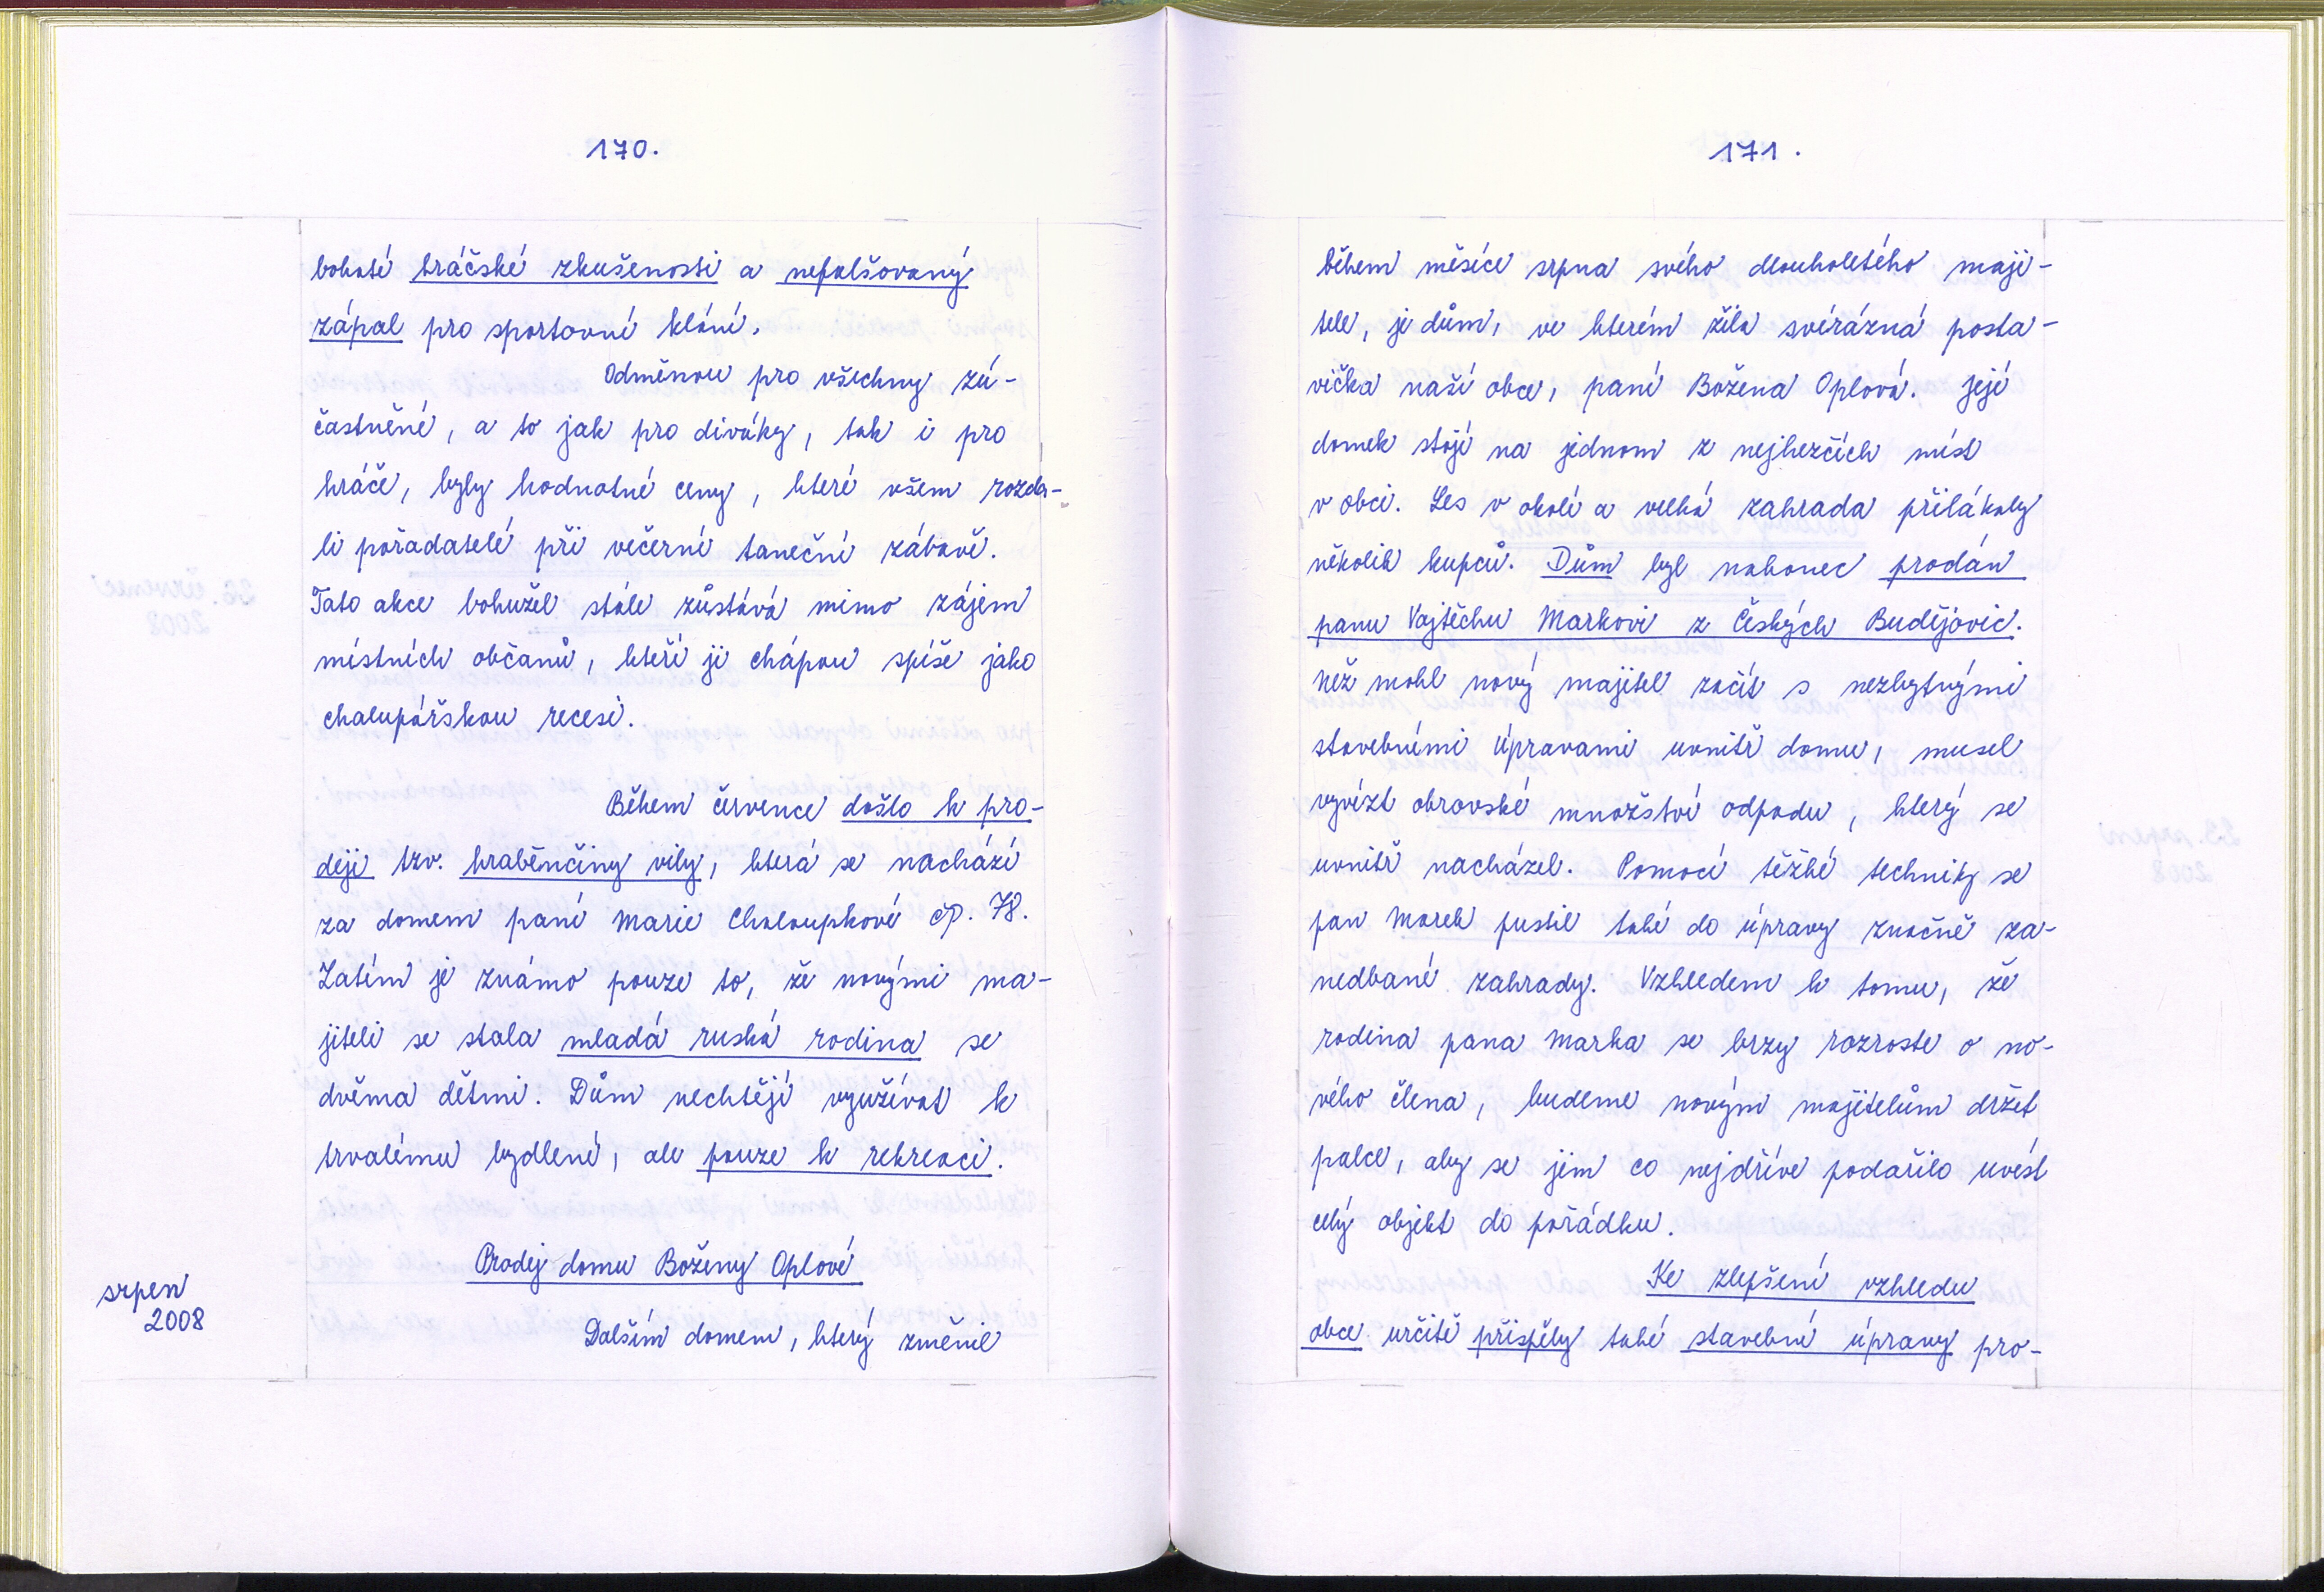 170.
bohaté hráčské zkušenosti a nefalšovaný
zápal pro sportovní klání.
Odměnou pro všechny zú-
častněné, a to jak pro diváky, tak i pro
hráče, byly hodnotné ceny, které všem rozda-
li pořadatelé při večerní taneční zábavě.
Tato akce bohužel stále zůstává mimo zájem
místních občanů, kteří ji chápou spíše jako
chalupářskou recesi.
Během července došlo k pro-
deji tzv. hraběnčiny vily, která se nachází
za domem paní Marie Chaloupkové čp. 78.
Zatím je známo pouze to, že novými ma-
jiteli se stala mladá ruská rodina se
dvěma dětmi. Dům nechtějí využívat k
trvalému bydlení, ale pouze k rekreaci.
Prodej domu Boženy Oplové
srpen
2008
Dalším domem, který změnil
171.
během měsíce srpna svého dlouholetého maji-
tele, je dům, ve kterém žila svérázná posta-
vička naší obce, paní Božena Oplová. Její
domek stojí na jednom z nejhezčích míst
v obci. Les v okolí a velká zahrada přilákaly
několik kupců. Dům byl nakonec prodán
panu Vojtěchu Markovi z Českých Budějovic.
Než mohl nový majitel začít s nezbytnými
stavebními úpravami uvnitř domu, musel
vyvézt obrovské množství odpadu, který se
uvnitř nacházel. Pomocí těžké techniky se
pan Marek pustil také do úpravy značně za-
nedbané zahrady. Vzhledem k tomu, že
rodina pana Marka se brzy rozroste o no-
vého člena, budeme novým majitelům držet
palce, aby se jim co nejdříve podařilo uvést
celý objekt do pořádku.
Ke zlepšení vzhledu
obce určitě přispěly také stavební úpravy pro-